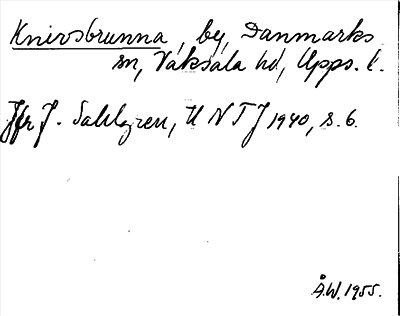 Knivsbrunna, by, Danmarks
sn, Vaksala hd, Upps. l.
Jfr J. Sahlgren, UNTJ 1940, s. 6.
Å.W. 1955.